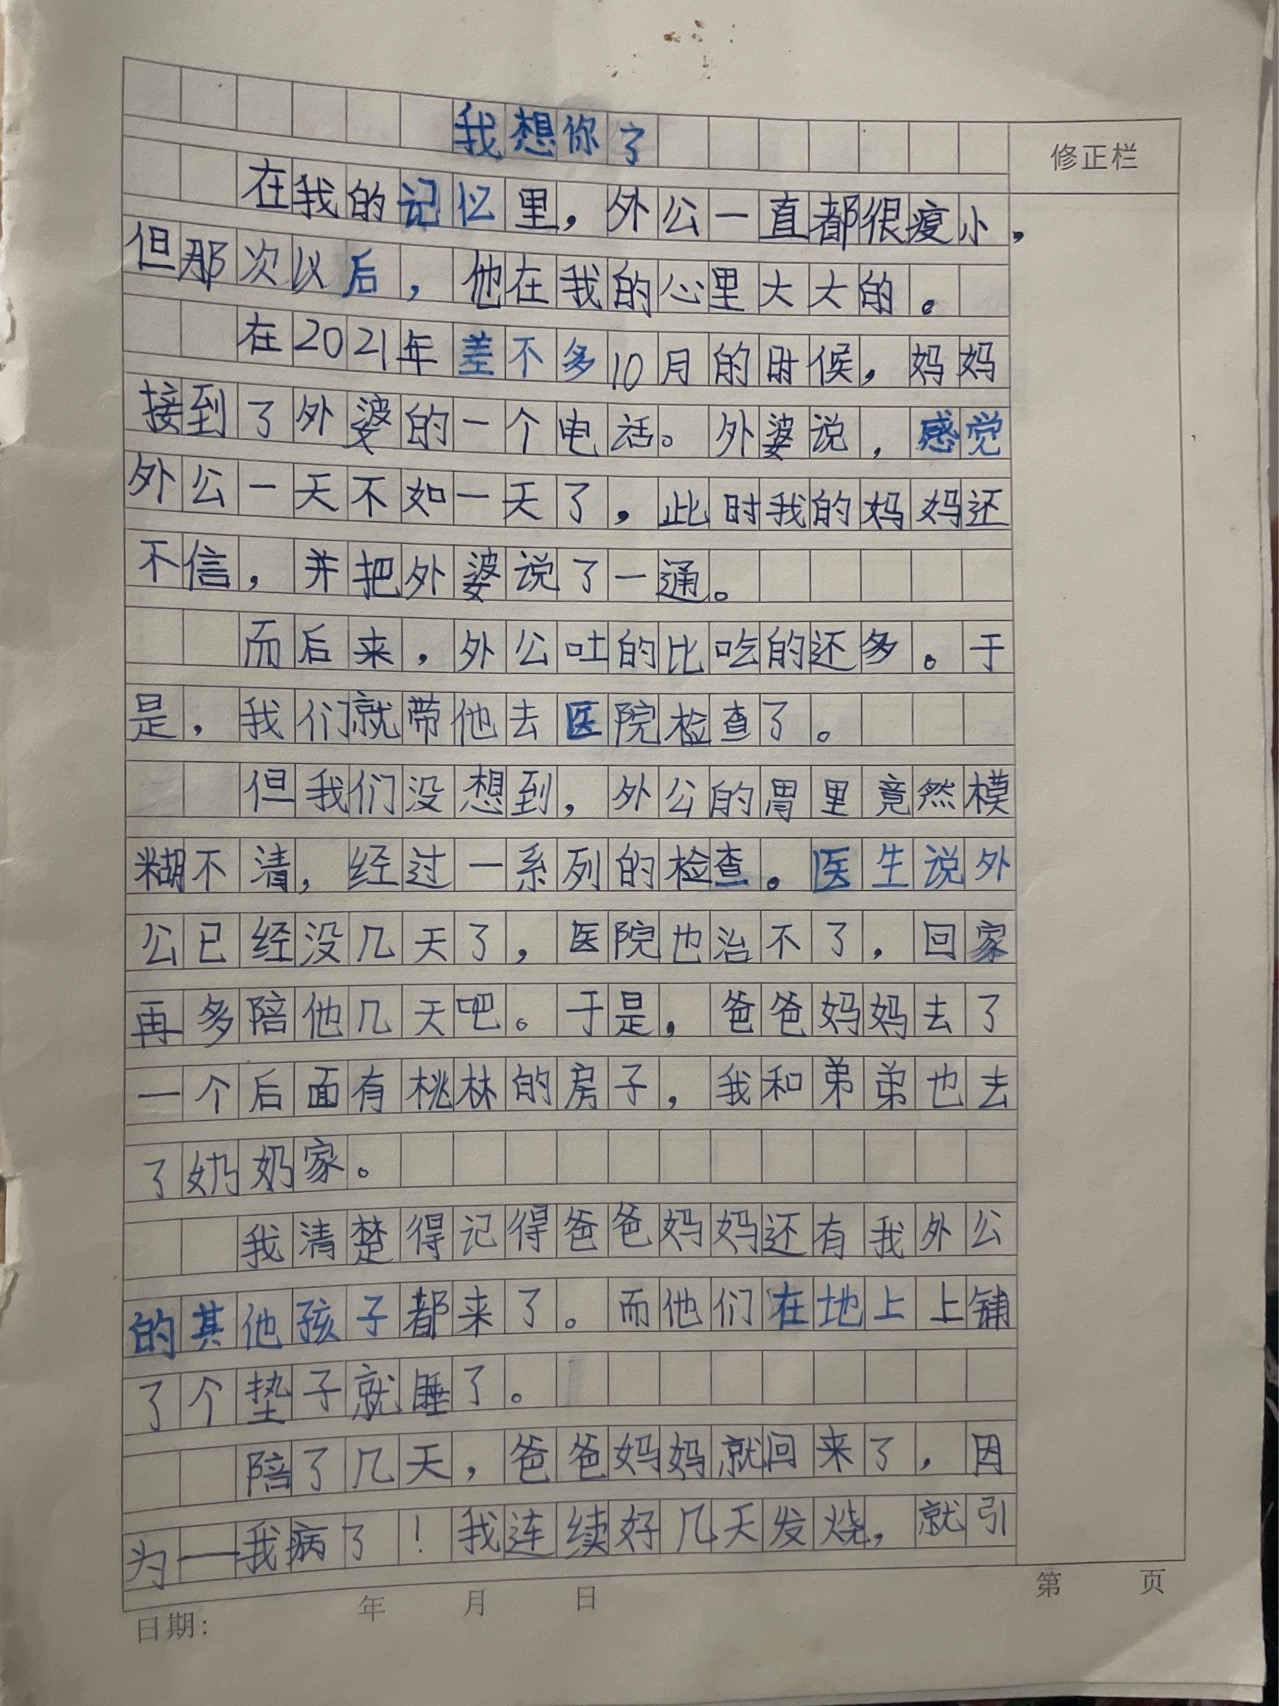 我想你了
修正栏
在我的记忆里，外公一直都很瘦小，
但那次以后，他在我的心里大大的。
在2021年差不多10月的时候，妈妈
接到了外婆的一个电话。外婆说，感觉
外公一天不如一天了，此时我的妈妈还
不信，并把外婆说了一通。
而后来，外公吐的比吃的还多。于
是，我们就带他去医院检查了。
但我们没想到，外公的胃里竟然模
糊不清，经过一系列的检查。医生说外
公已经没几天了，医院也治不了，回家
再多陪他几天吧。于是，爸爸妈妈去了
一个后面有桃林的房子，我和弟弟也去
了奶奶家。
我清楚得记得爸爸妈妈还有我外公
的其他孩子都来了。而他们在地上上铺
了个垫子就睡了。
陪了几天，爸爸妈妈就回来了，因
为一我病了！我连续好几天发烧，就引
日期: 年 月 日
第 页